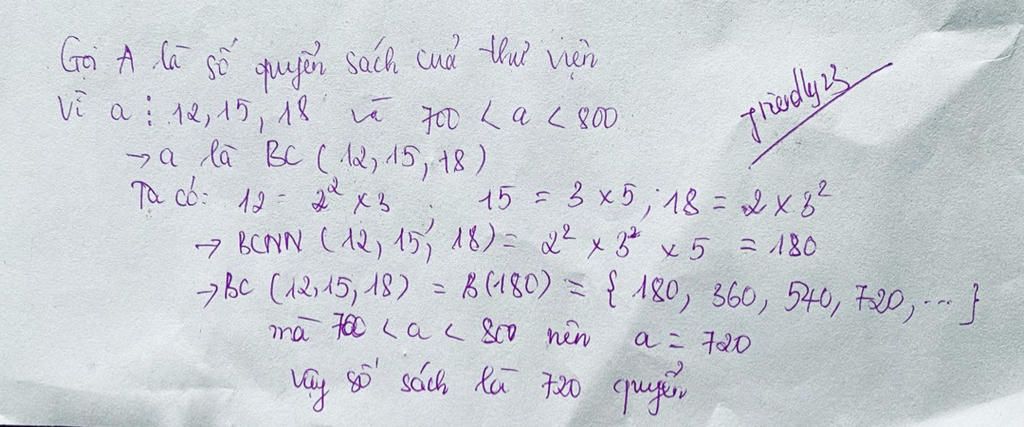 Gọi A là số quyển sách cuả thư viện
Vì a ⋮ 12, 15, 18 và 700 < a < 800
→ a là BC ( 12, 15, 18 )
Ta có: 12 = 2² × 3 ; 15 = 3 × 5 ; 18 = 2 × 3²
→ BCNN ( 12, 15, 18 ) = 2² × 3² × 5 = 180
→ BC ( 12, 15, 18 ) = B(180) = { 180, 360, 540, 720, ... }
mà 700 < a < 800 nên a = 720
Vậy số sách là 720 quyển
friendly23